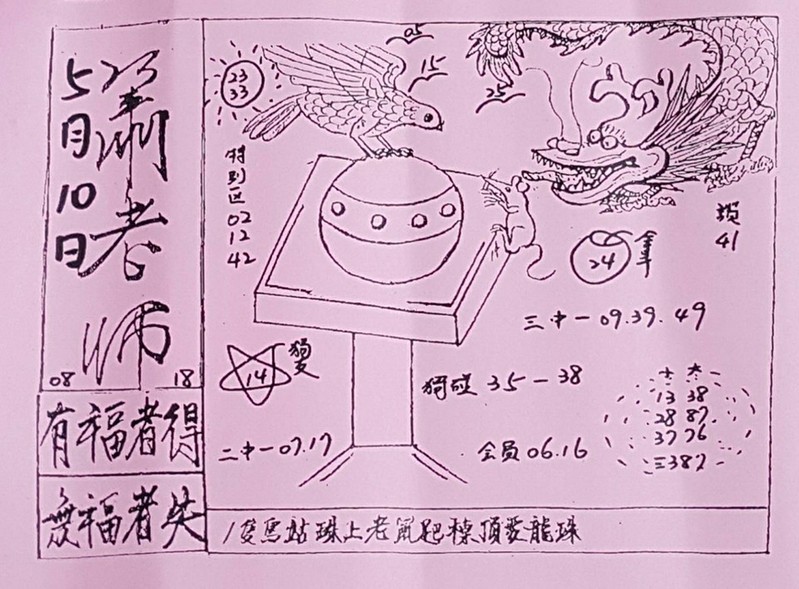 5月10日
老师
08 18
有福者得
無福者失
23
33
05
15
25
特别区
02
12
42
41
24
三中一 09.39.49
14
35-38
二中一 07.17
会員 06.16
13 38
28 87
37 76
三387
1隻鳥站珠上老鼠爬棹頂愛龍珠